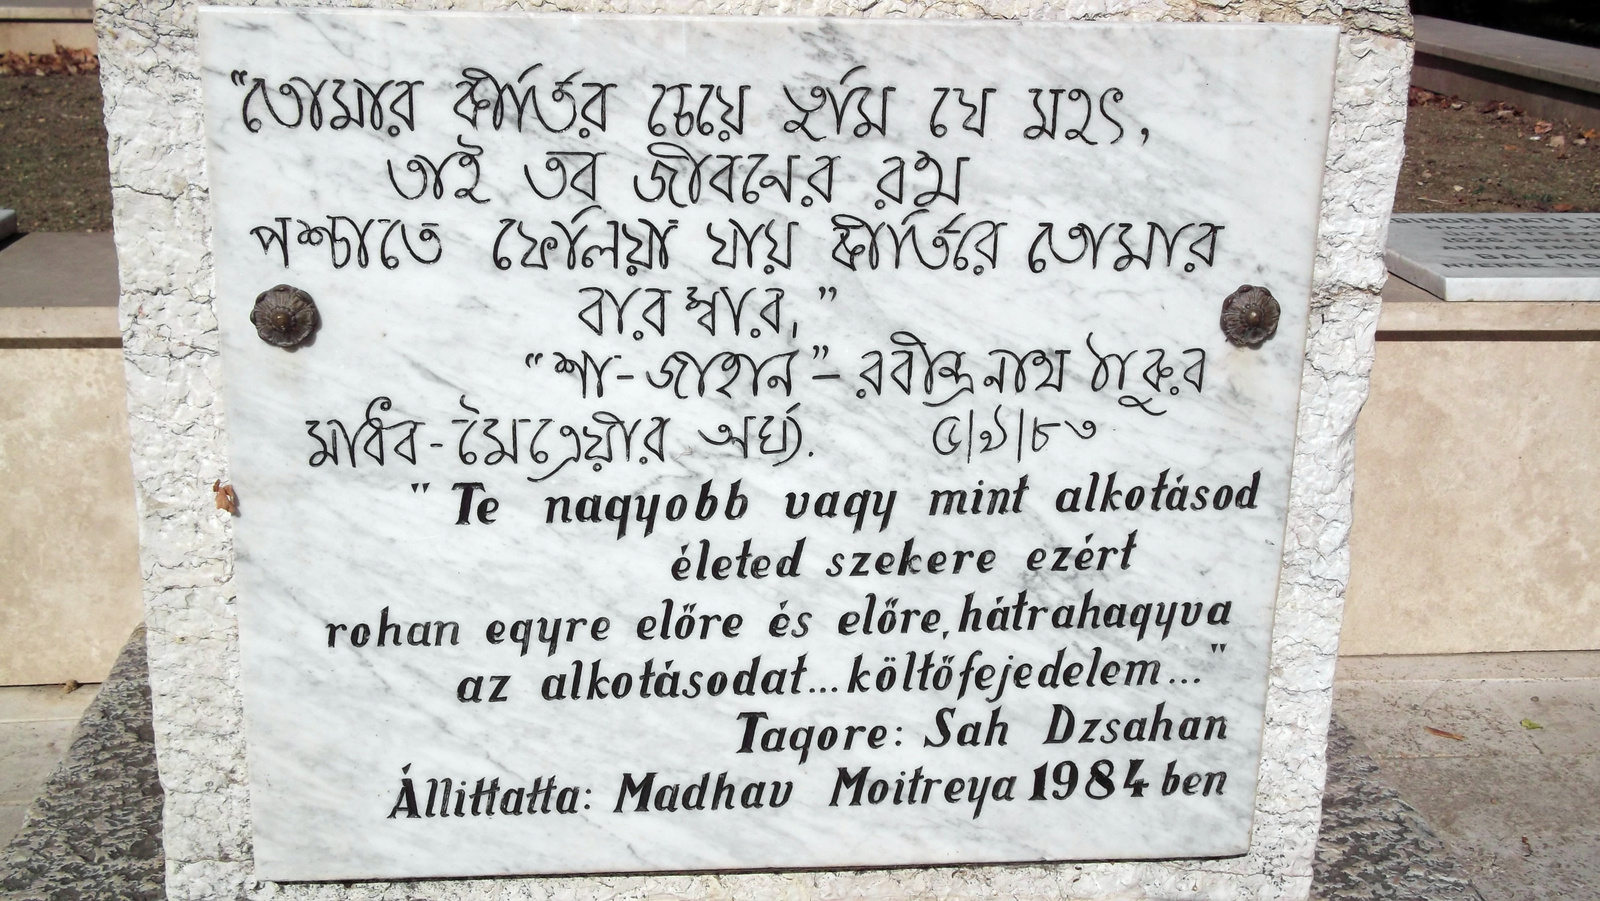 “তোমার কীর্তির চেয়ে তুমি যে মহৎ,
তাই তব জীবনের রথ
পশ্চাতে ফেলিয়া যায় কীর্তিরে তোমার
বারম্বার,”
“শা-জাহান” – রবীন্দ্রনাথ ঠাকুর
মাধব-মৈত্রেয়ীর অর্ঘ্য. ৫|৯|৮৩
" Te nagyobb vagy mint alkotásod
életed szekere ezért
rohan egyre előre és előre, hátrahagyva
az alkotásodat... költőfejedelem... "
Tagore: Sah Dzsahan
Állíttatta: Madhav Moitreya 1984 ben